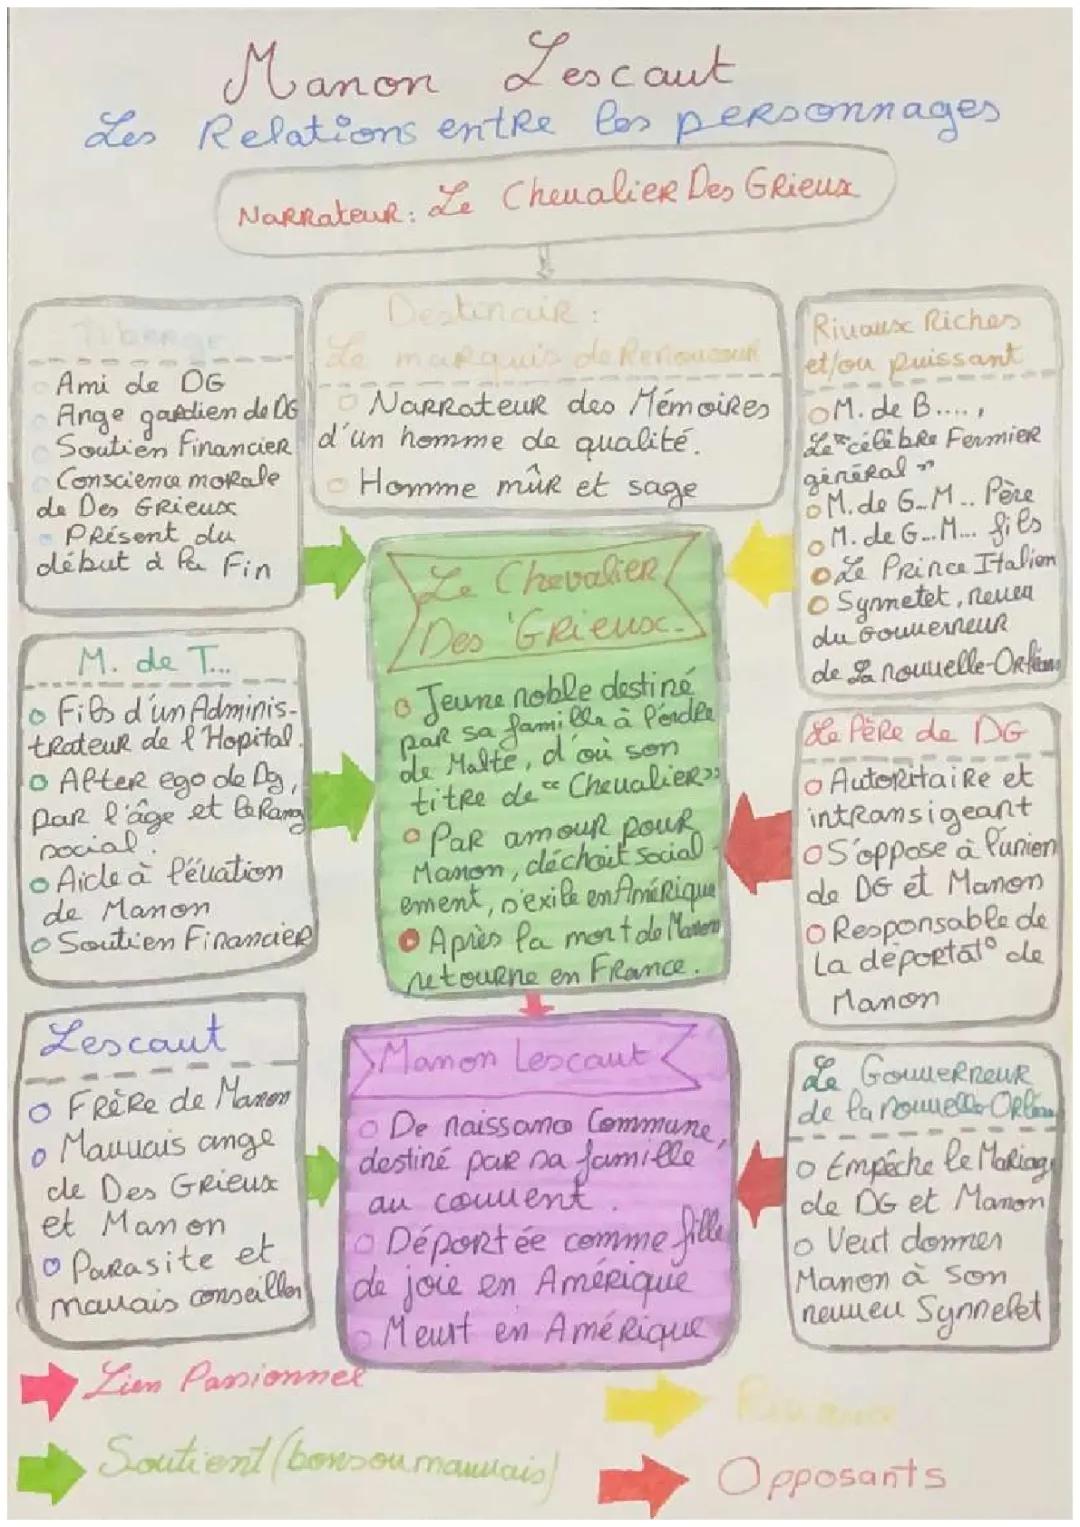 Manon Lescaut
Les Relations entre les personnages
Narrateur: Le Chevalier Des Grieux
Tiberge
Ami de DG
Ange gardien de DG
Soutien Financier
Conscience morale
de Des Grieux
Présent du
début à la Fin
Destinair :
Le marquis de Renoncour
Narrateur des Mémoires
d'un homme de qualité.
Homme mûr et sage
Rivaux Riches
et/ou puissant
M. de B....,
Le "célèbre Fermier
général"
M. de G...M... Père
M. de G...M... fils
Le Prince Italien
Synnetet, neveu
du Gouverneur
de La nouvelle-Orléans
M. de T...
Fils d'un Adminis-
trateur de l'Hopital.
Alter ego de Dg,
par l'âge et le Rang
social.
Aide à l'évation
de Manon
Soutien Financier
Le Chevalier
Des Grieux.
Jeune noble destiné
par sa famille à l'ordre
de Malte, d'où son
titre de "Chevalier"
Par amour pour
Manon, déchoit social-
ement, s'exile en Amérique
Après la mort de Manon
retourne en France.
Le Père de DG
Autoritaire et
intransigeant
S'oppose à l'union
de DG et Manon
Responsable de
la déportat° de
Manon
Lescaut
Frère de Manon
Mauvais ange
de Des Grieux
et Manon
Parasite et
mauvais conseiller
Manon Lescaut
De naissance Commune,
destiné par sa famille
au couvent.
Déportée comme fille
de joie en Amérique
Meurt en Amérique
Le Gouverneur
de la nouvelle-Orléans
Empêche le Mariage
de DG et Manon
Veut donner
Manon à Son
neuveu Synnelet
Lien Passionnel
Soutient (bons ou mauvais)
Rivaux
Opposants